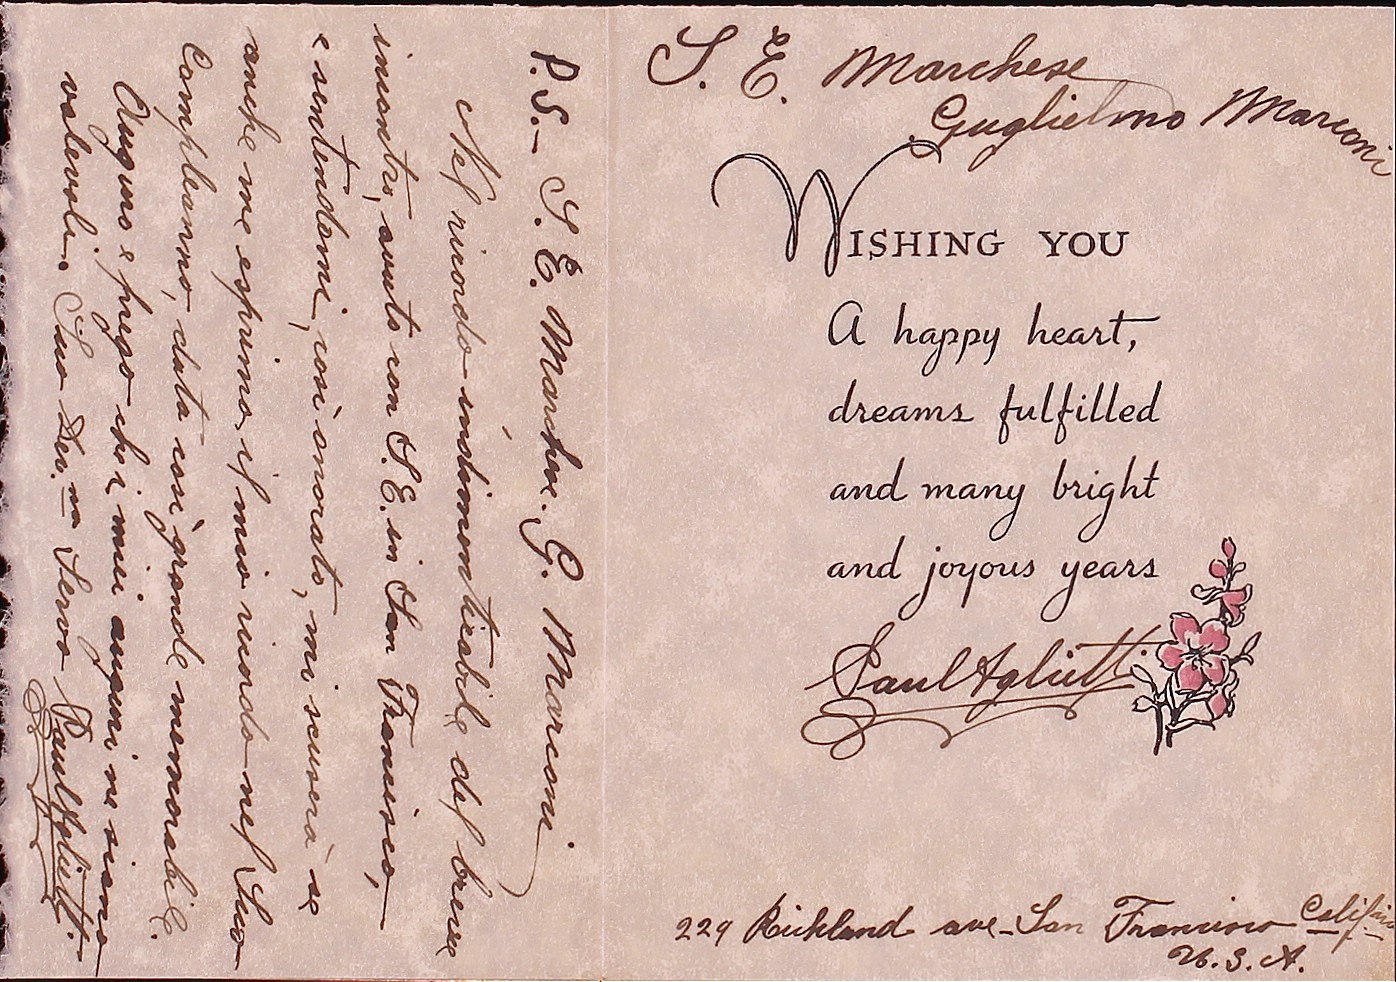 P.S.– S. E. Marchese. G. Marconi
Nel ricordo indimenticabile del breve
incontro, avuto con S.E. in San Francisco,
e sentendomi, così onorato, mi scuserà se
anche me esprimo, il mio ricordo nel Suo
Compleanno, data così grande memorabile.
Auguro e prego che i miei auguri ne siano
valevoli. Suo Dev.mo Servo Paul Aglietti.
S. E. Marchese
Guglielmo Marconi
WISHING YOU
A happy heart,
dreams fulfilled
and many bright
and joyous years
Paul Aglietti
229 Richland ave – San Francisco Califor
U.S.A.